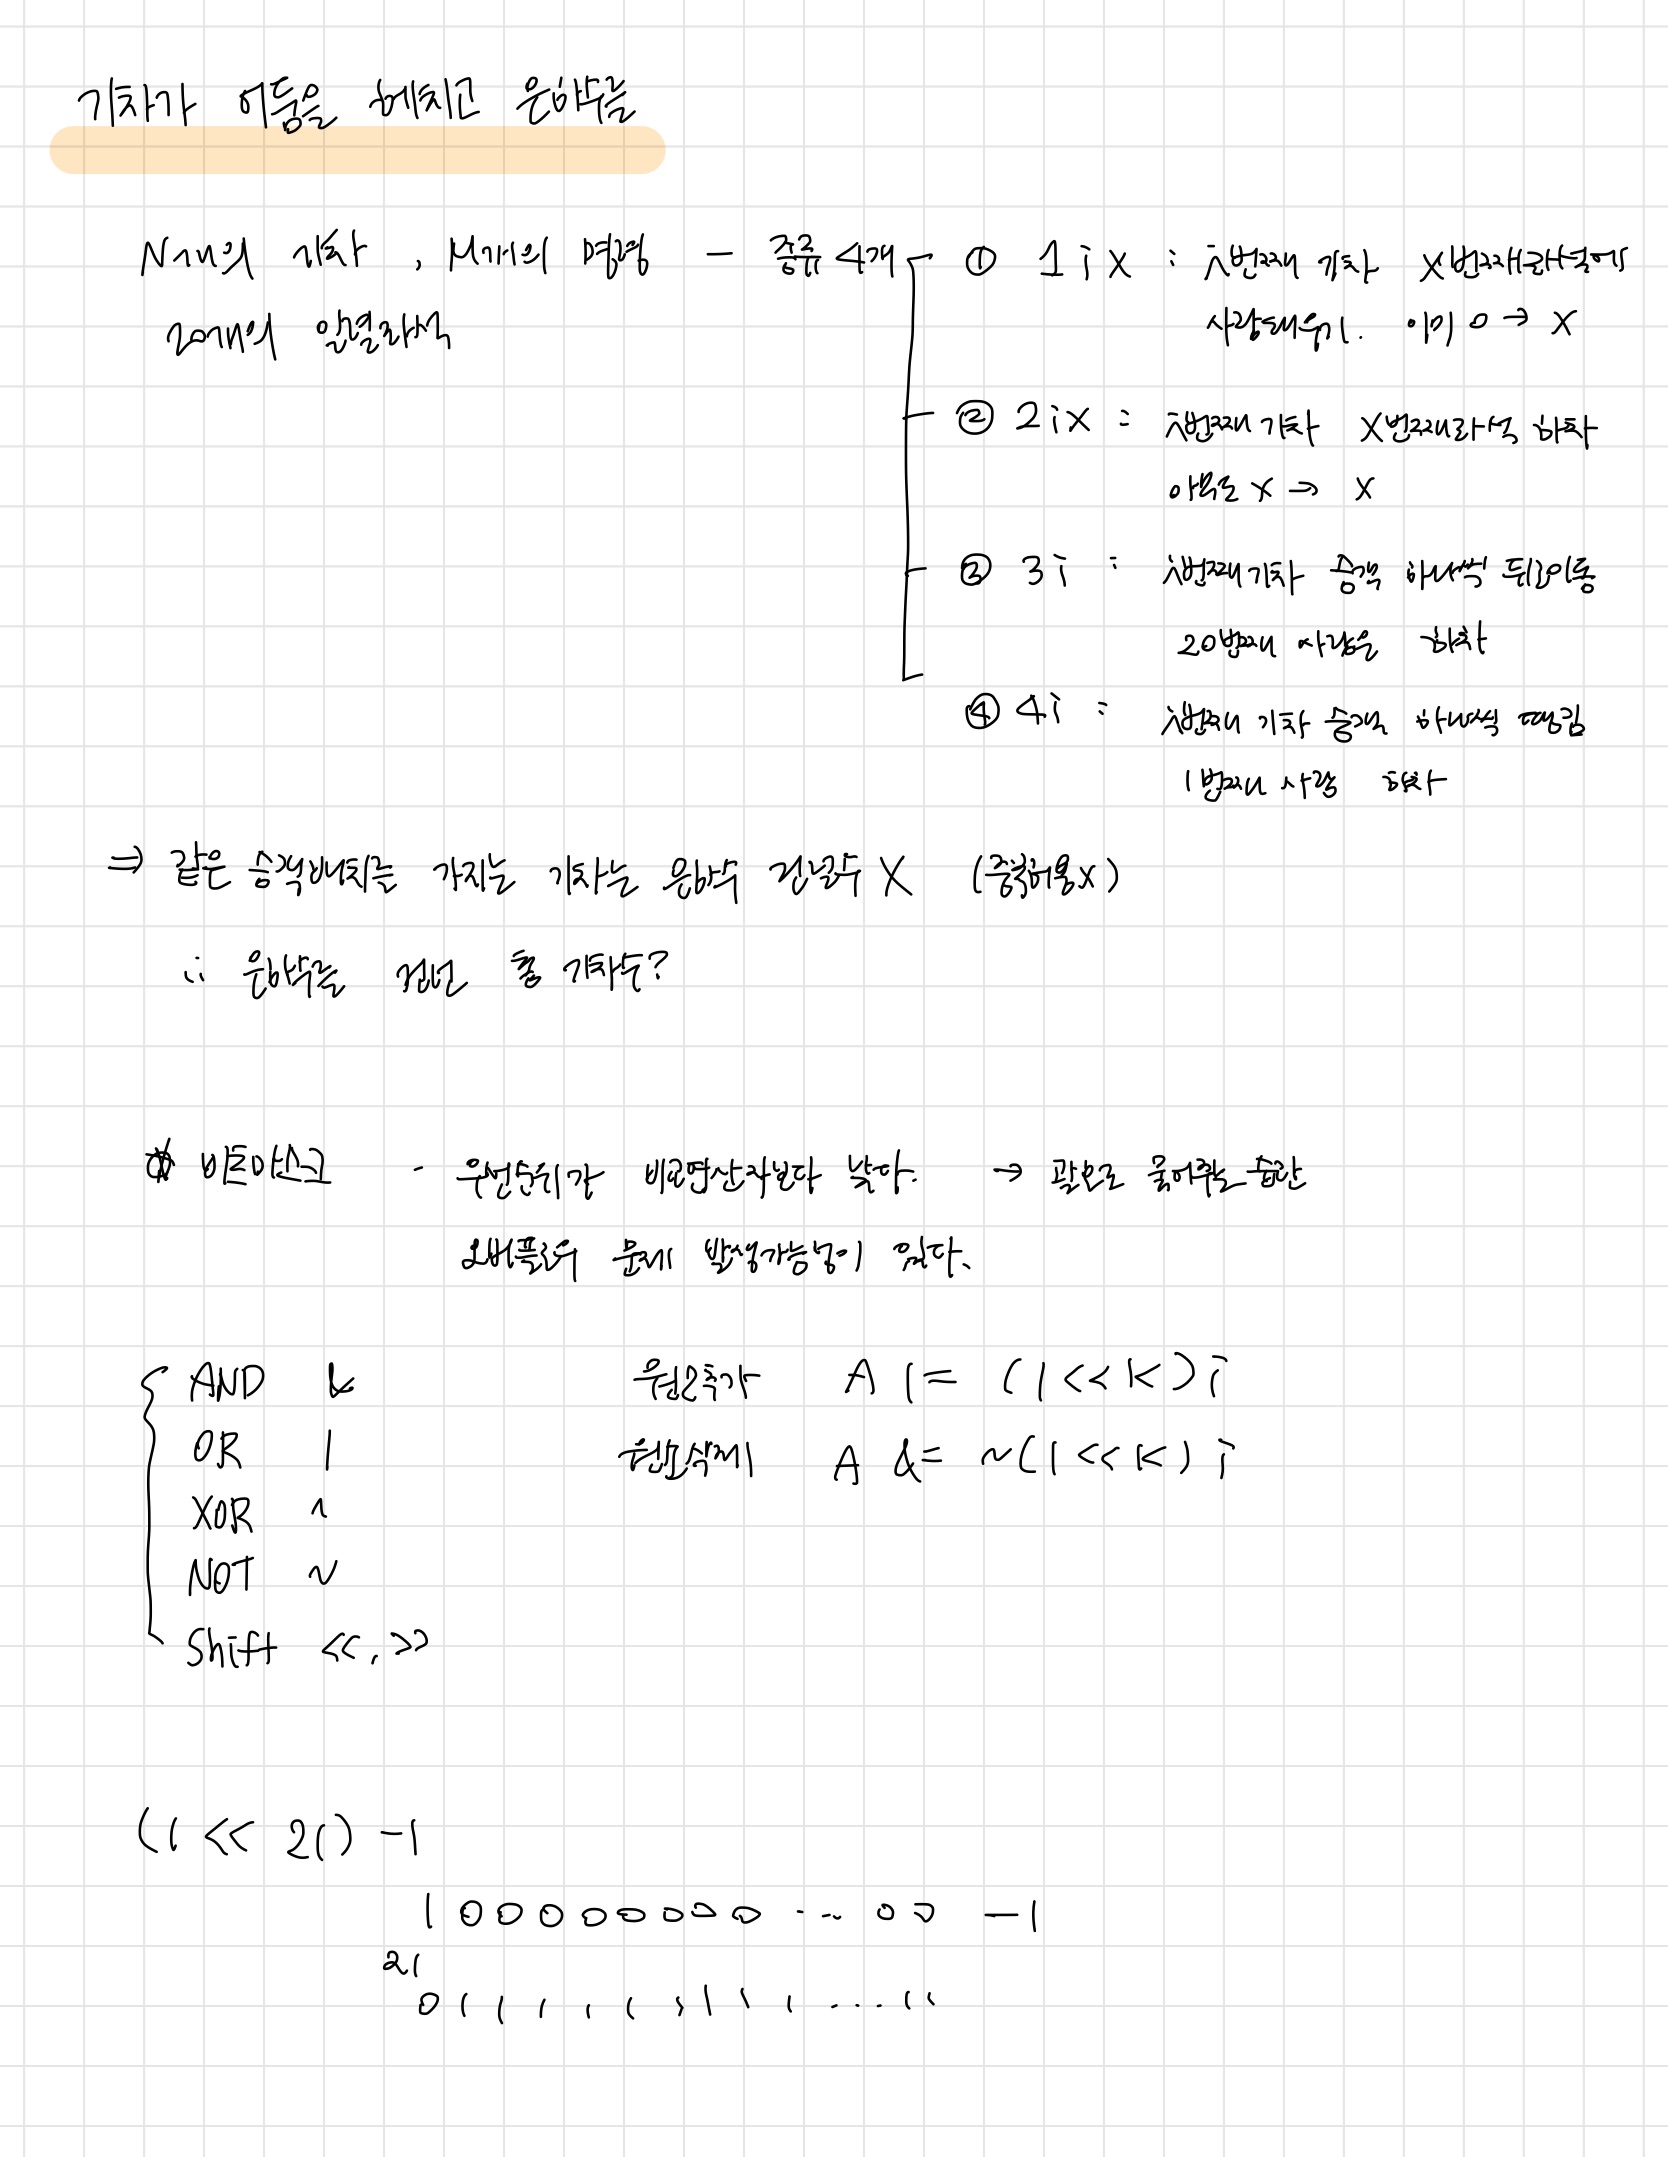 기차가 어둠을 헤치고 은하수를
N개의 기차 , M개의 명령 - 종류 4개
20개의 일렬좌석
① 1 i x : i번째 기차 x번째좌석에
사람태우기. 이미 o → x
② 2 i x : i번째 기차 x번째좌석 하차
아무도 x → x
③ 3 i : i번째 기차 승객 하나씩 뒤로이동
20번째 사람은 하차
④ 4 i : i번째 기차 승객 하나씩 땡김
1번째 사람 하차
⇒ 같은 승객배치를 가지는 기차는 은하수 건널수 X (중복허용x)
∴ 은하수를 건넌 총 기차수?
비트마스크 - 우선순위가 비교연산자보다 낮다. → 괄호로 묶어주는 습관
오버플로우 문제 발생가능성이 있다.
AND & 원소추가 A |= (1 << k);
OR | 원소삭제 A &= ~(1 << k);
XOR ^
NOT ~
Shift <<, >>
(1 << 21) -1
1 0 0 0 0 0 0 0 0 ... 0 0 -1
21
0 1 1 1 1 1 1 1 1 1 .... 1 1